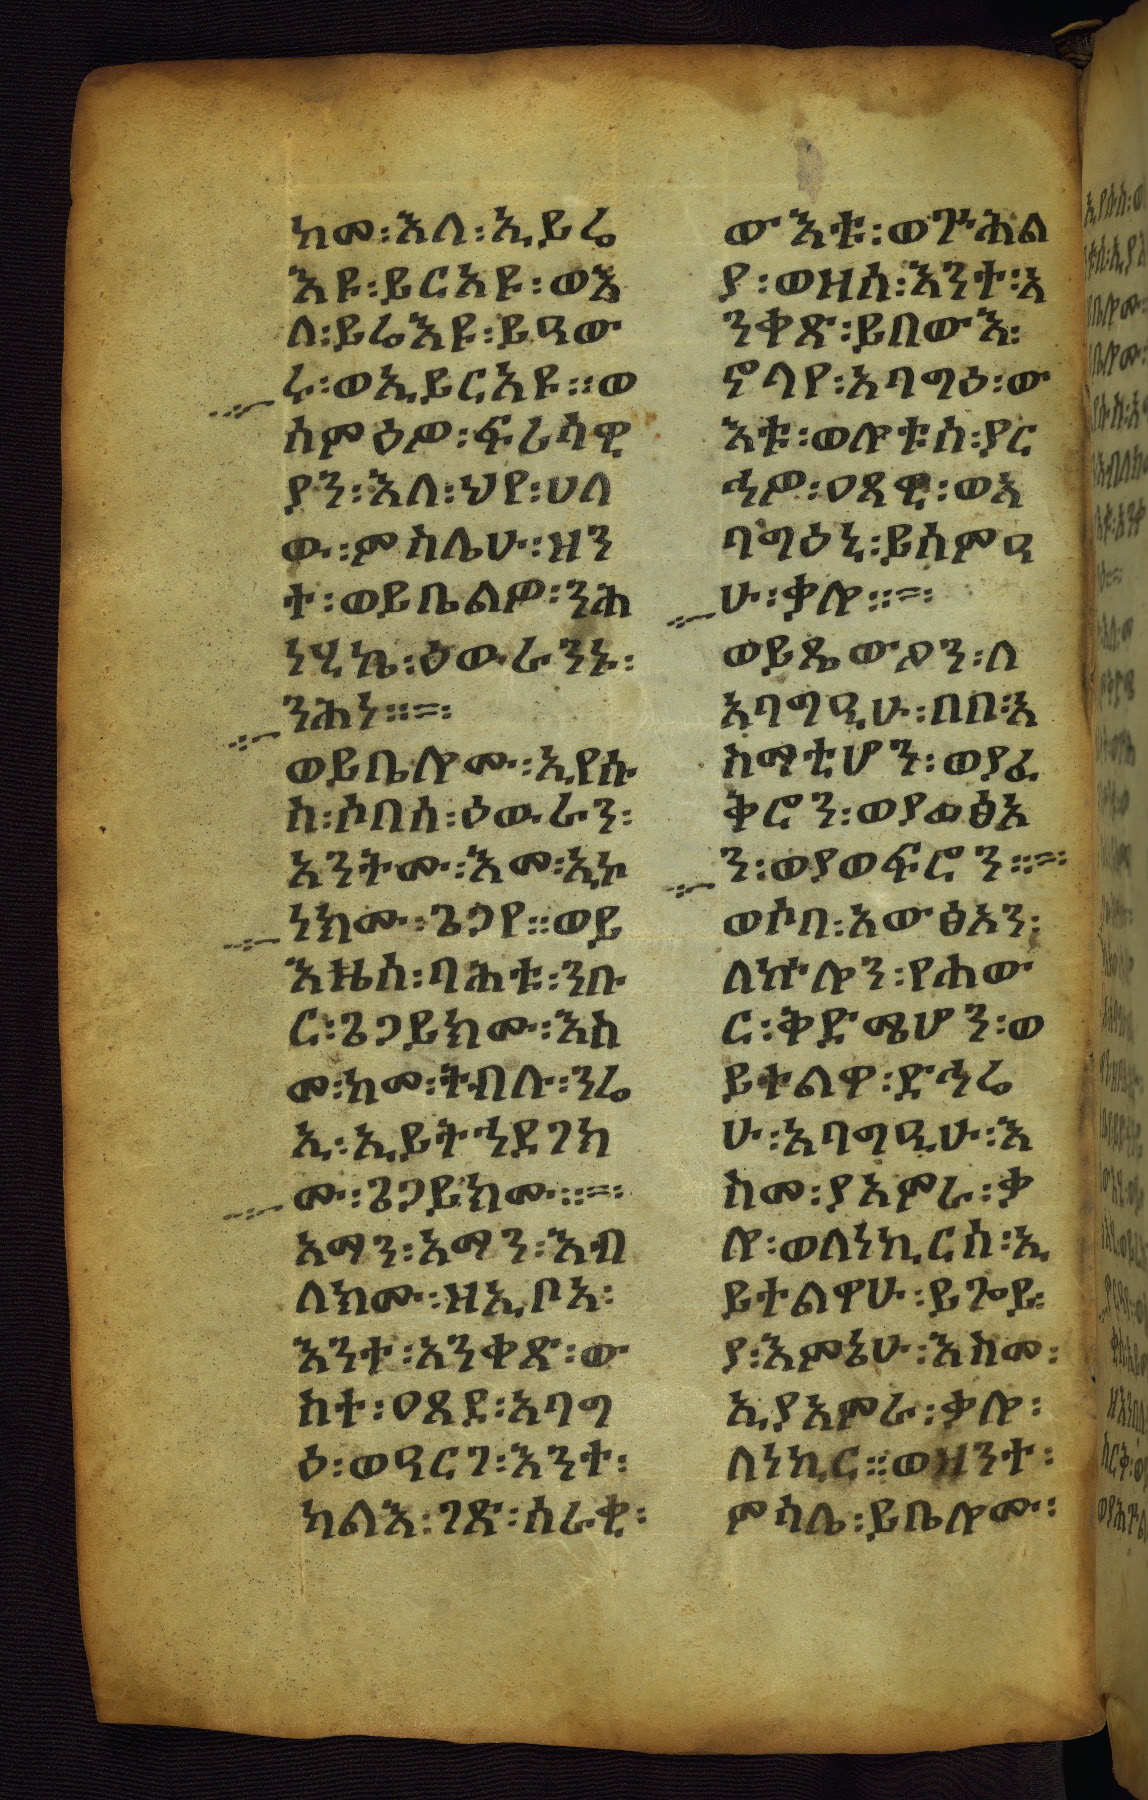 ከመ፡እለ፡ኢይሬ
እዩ፡ይርአዩ፡ወእ
ለ፡ይሬእዩ፡ይዑው
ሩ፡ወኢይርአዩ፡፡ወ
ሰምዕዎ፡ፍሪሳዊ
ያን፡እለ፡ህየ፡ሀለ
ው፡ምስሌሁ፡ዘን
ተ፡ወይቤልዎ፡ንሕ
ነሂኬ፡ዕውራንኑ፡
ንሕነ፡፡=፡
ወይቤሎሙ፡ኢየሱ
ስ፡ሶበሰ፡ዕውራን፡
አንትሙ፡እመ፡ኢኮ
ነክሙ፡ጌጋየ፡፡ወይ
እዜሰ፡ባሕቱ፡ንቡ
ር፡ጌጋይክሙ፡እስ
መ፡ከመ፡ትብሉ፡ንሬ
ኢ፡ኢይትኀደገክ
ሙ፡ጌጋይክሙ፡፡=፡
አማን፡አማን፡እብ
ለክሙ፡ዘኢቦአ፡
እንተ፡አንቀጽ፡ው
ስተ፡ዐጸደ፡አባግ
ዕ፡ወዓርገ፡እንተ፡
ካልእ፡ገጽ፡ሰራቂ፡
ውእቱ፡ወጕሕል
ያ፡ወዘሰ፡እንተ፡አ
ንቀጽ፡ይበውእ፡
ኖላየ፡አባግዕ፡ው
እቱ፡ወሎቱሰ፡ያር
ኅዎ፡ዐጸዊ፡ወአ
ባግዕኒ፡ይሰምዓ
ሁ፡ቃሎ፡፡=፡
ወይጼውዖን፡ለ
አባግዒሁ፡በበ፡አ
ስማቲሆን፡ወያፈ
ቅሮን፡ወያወፅአ
ን፡ወያወፍሮን፡፡=፡
ወሶበ፡አውፅአን፡
ለኵሎን፡የሐው
ር፡ቅድሜሆን፡ወ
ይተልዋ፡ድኅሬ
ሁ፡አባግዒሁ፡እ
ስመ፡ያአምራ፡ቃ
ሎ፡ወለነኪርሰ፡ኢ
ይተልዋሁ፡ይጐይ
ያ፡እምኔሁ፡እስመ፡
ኢያአምራ፡ቃሎ፡
ለነኪር፡፡ወዘንተ፡
ምሳሌ፡ይቤሎሙ፡